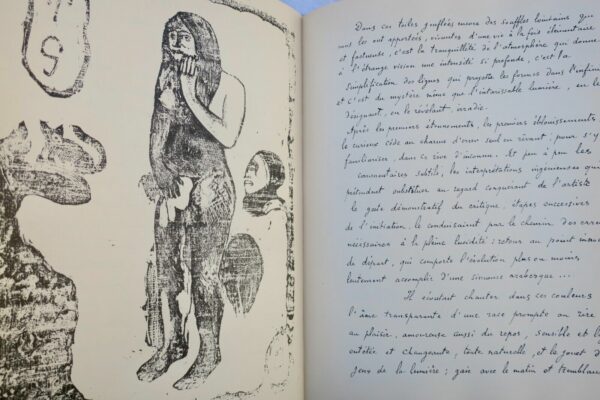 Dans ces toiles gonflées encore des souffles lointains qui
nous les ont apportées, vivantes d'une vie à la fois élémentaire
et fastueuse, c'est la tranquillité de l'atmosphère qui donne
à l'étrange vision une intensité si profonde, c'est la
simplification des lignes qui projette les formes dans l'infini
et c'est du mystère même que l'intarissable lumière, en le
désignant, en le révélant, irradie.
Après les premiers étonnements, les premiers éblouissements
le curieux cède au charme d'errer seul en rêvant, pour s'y
familiariser, dans ce rêve d'inconnu. Et peu à peu les
commentaires subtils, les interprétations ingénieuses qui
prétendent substituer au regard conquérant de l'artiste
le geste démonstratif du critique, étapes successives
de l'initiation, le conduisaient par le chemin des erreu
nécessaires à la pleine lucidité : retour au point
de départ, qui comporte l'évolution plus ou moins
lentement accomplie d'une sinueuse arabesque ...
Il écoutait chanter dans ces couleurs
l'âme transparente d'une race prompte au rire
au plaisir, amoureuse aussi du repos, sensible et
entêtée et changeante, toute naturelle, et le jouet d
jeux de la lumière : gaie avec le matin et tremblan